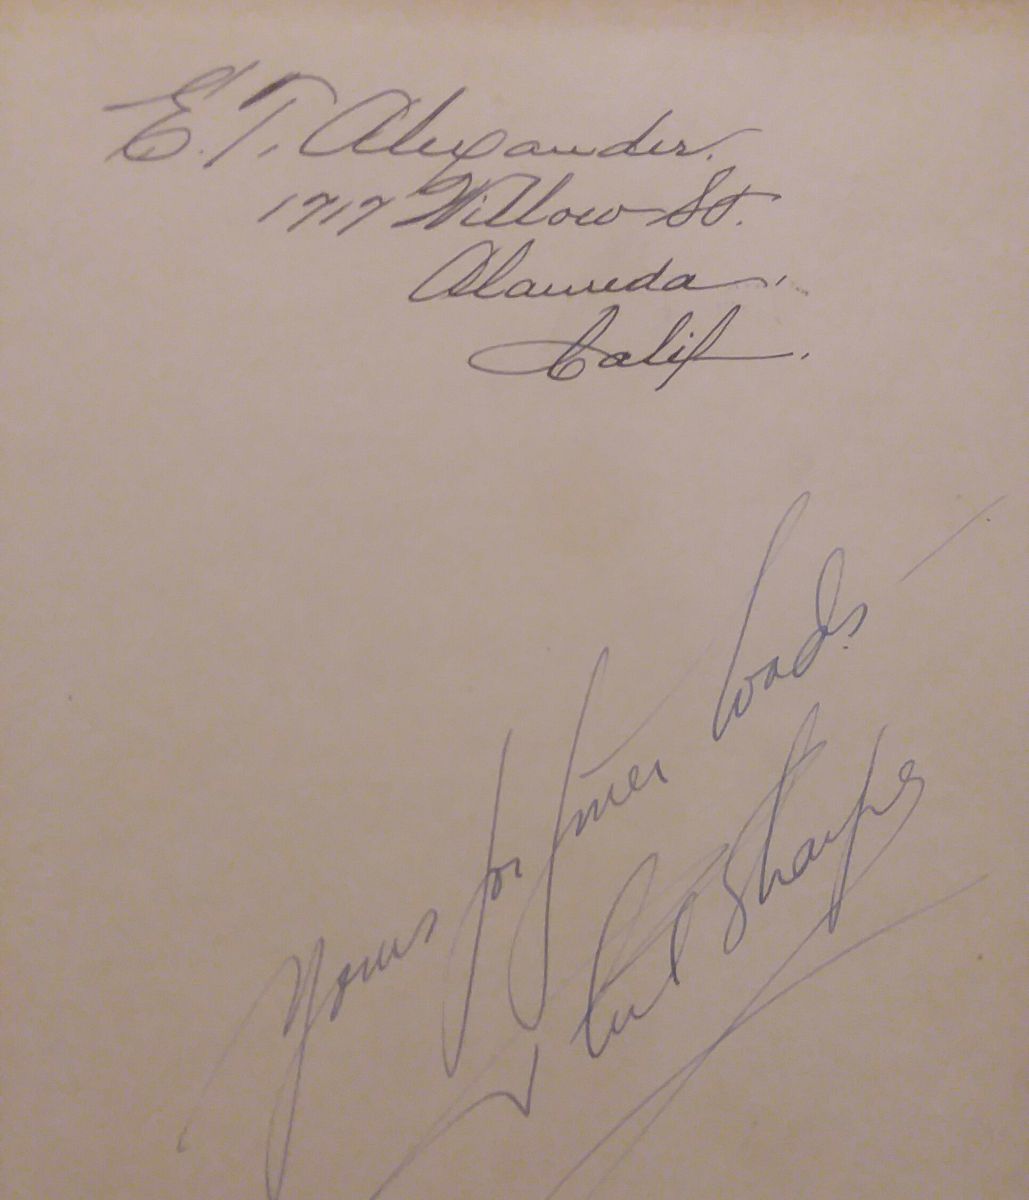 E. T. Alexander.
1717 Willow St.
Alameda.
Calif.
Yours for finer loads –
Phil Sharpe